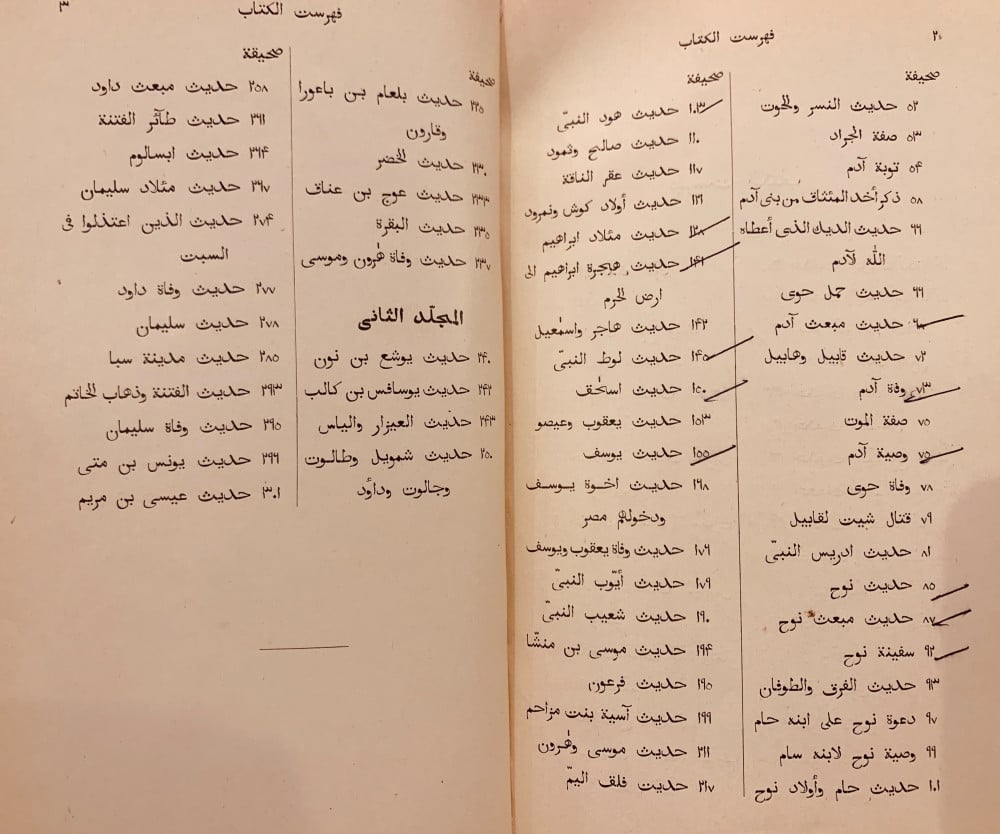 ٢
فهرست الكتاب
صحيفة
٥٢ حديث النسر والحوت
٥٣ صفة الجراد
٥٤ توبة آدم
٥٨ ذكر أخد المئثاق من بنى آدم
٦٦ حديث الديك الذى أعطاه
الله لآدم
٦٦ حديث حمل حوى
٦٨ حديث مبعث آدم
٧٢ حديث قابيل وهابيل
٧٣ وفاة آدم
٧٥ صفة الموت
٧٥ وصية آدم
٧٨ وفاة حوى
٧٩ قتال شيت لقابيل
٨١ حديث ادريس النبىّ
٨٥ حديث نوح
٨٧ حديث مبعث نوح
٩٢ سفينة نوح
٩٣ حديث الغرق والطوفان
٩٧ دعوة نوح على ابنه حام
٩٩ وصية نوح لابنه سام
١٠١ حديث حام وأولاد نوح
صحيفة
١٠٣ حديث هود النبىّ
١١٠ حديث صالح وثمود
١١٧ حديث عقر الناقة
١٢١ حديث أولاد كوش ونمرود
١٢٨ حديث مئلاد ابراهيم
١٤١ حديث هجرة ابراهيم الى
ارض الحرم
١٤٢ حديث هاجر واسمٰعيل
١٤٥ حديث لوط النبىّ
١٥٠ حديث اسحٰق
١٥٣ حديث يعقوب وعيصو
١٥٥ حديث يوسف
١٦٨ حديث اخوة يوسف
ودخولهم مصر
١٧٦ حديث وفاة يعقوب ويوسف
١٧٩ حديث أيّوب النبىّ
١٩٠ حديث شعيب النبىّ
١٩٤ حديث موسى بن منشّا
١٩٥ حديث فرعون
١٩٩ حديث آسية بنت مزاحم
٢١١ حديث موسى وهٰرون
٢١٧ حديث فلق اليمّ
فهرست الكتاب
٣
صحيفة
٢٢٥ حديث بلعام بن باعورا
وقارون
٢٣٠ حديث الخضر
٢٣٣ حديث عوج بن عناق
٢٣٥ حديث البقرة
٢٣٧ حديث وفاة هٰرون وموسى
المجلّد الثانى
٢٤٠ حديث يوشع بن نون
٢٤٢ حديث يوسافس بن كالب
٢٤٣ حديث العيزار والياس
٢٥٠ حديث شمويل وطالوت
وجالوت وداود
صحيفة
٢٥٨ حديث مبعث داود
٢٦١ حديث طآئر الفتنة
٢٦٤ حديث ابسالوم
٢٦٧ حديث مئلاد سليمان
٢٧٤ حديث الذين اعتدلوا فى
السبت
٢٧٧ حديث وفاة داود
٢٧٨ حديث سليمان
٢٨٥ حديث مدينة سبا
٢٩٣ حديث الفتنة وذهاب الخاتم
٢٩٥ حديث وفاة سليمان
٢٩٦ حديث يونس بن متى
٣٠١ حديث عيسى بن مريم